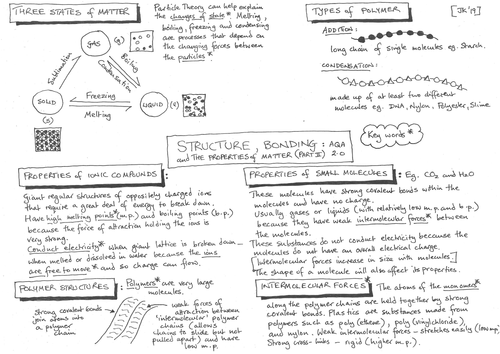 THREE STATES OF MATTER
Particle Theory can help explain
the changes of state*. Melting,
boiling, freezing and condensing
are processes that depend on
the changing forces between
the particles*
GAS (g)
Sublimation
Boiling
Condensation
Freezing
Melting
SOLID
(s)
LIQUID (l)
TYPES OF POLYMER
[JK'19]
ADDITION:
long chain of single molecules eg. Starch.
CONDENSATION:
made up of at least two different
molecules eg. DNA, Nylon, Polyester, Slime
STRUCTURE, BONDING: AQA
and THE PROPERTIES OF MATTER (PART II) 2.0
Key words*
PROPERTIES OF IONIC COMPOUNDS:
Giant regular structures of oppositely charged ions
that require a great deal of energy to break down.
Have high melting points* (m.p.) and boiling points (b.p.)
because the force of attraction holding the ions is
very strong.
Conduct electricity* when giant lattice is broken down -
when melted or dissolved in water because the ions
are free to move* and so charge can flow.
PROPERTIES OF SMALL MOLECULES: Eg. CO2 and H2O
These molecules have strong covalent bonds within the
molecules and have no charge.
Usually gases or liquids (with relatively low m.p. and b.p.)
because they have weak intermolecular forces* between
the molecules.
These substances do not conduct electricity because the
molecules do not have an overall electrical charge.
[Intermolecular forces increase in size with molecules]
The shape of a molecule will also affect its properties.
POLYMER STRUCTURES: Polymers* are very large
molecules.
Strong covalent bonds
join atoms into
a polymer
chain
weak forces of
attraction between
'intermolecular' polymer
chains (allows
chains to slide but not
pulled apart) and have
low m.p.
INTERMOLECULAR FORCES: The atoms of the monomers*
along the polymer chains are held together by strong
covalent bonds. Plastics are substances made from
polymers such as poly(ethene), poly(vinylchloride)
and nylon. Weak intermolecular forces - stretches easily (low mp)
Strong cross-links - rigid (higher m.p.).